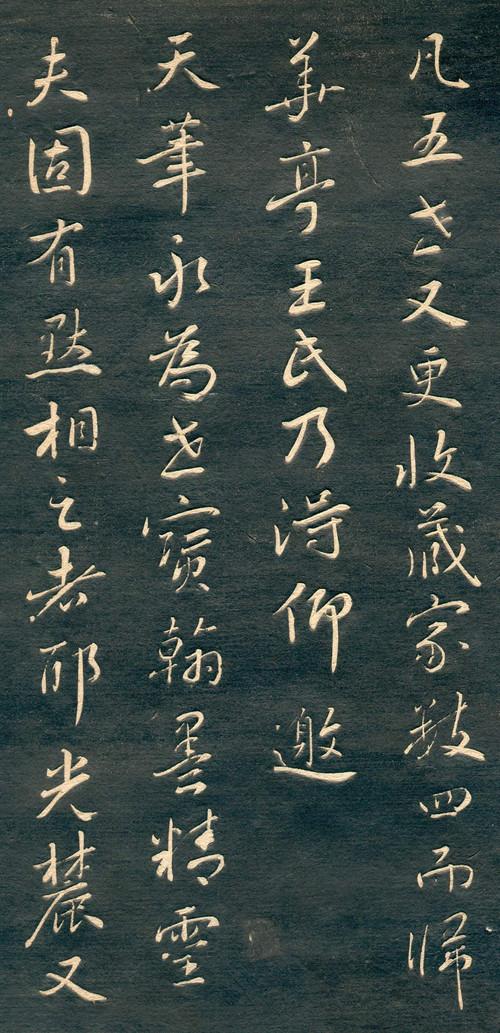 凡五世又更收藏家數四而歸
華亭王氏乃得仰邀
天筆永爲世寶翰墨精靈
夫固有默相之者耶光麓又